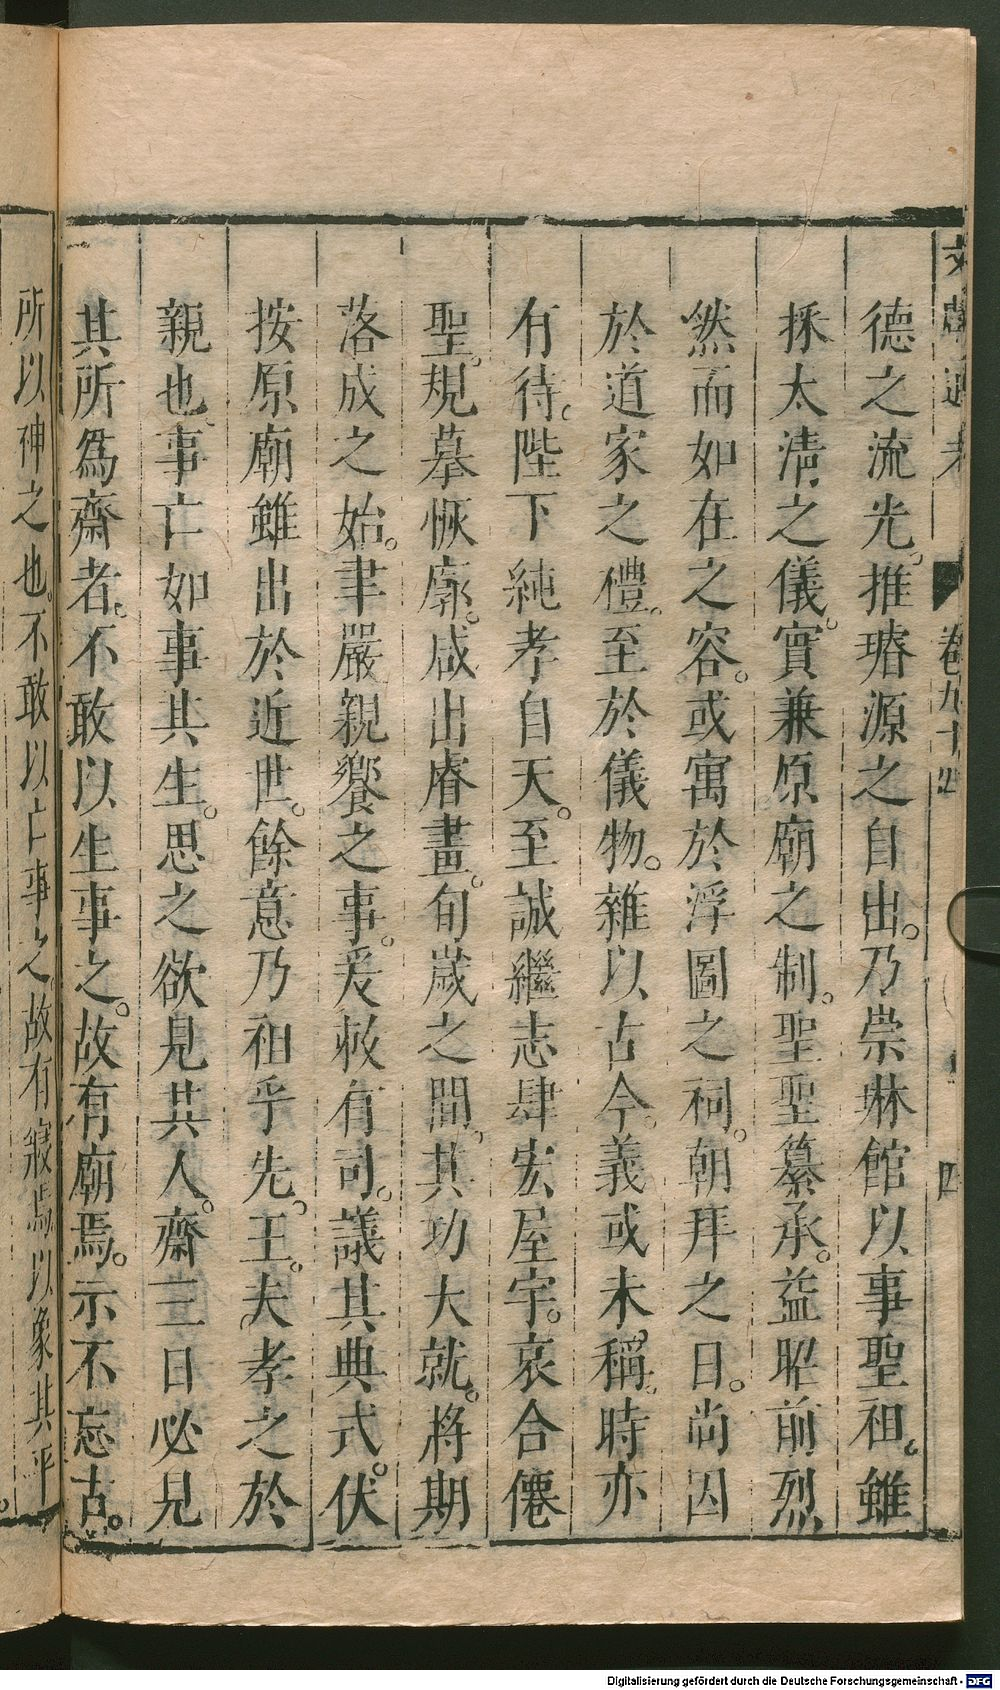 文獻通考 卷九十四 四
德之流光。推璿源之自出。乃崇琳館以事聖祖。雖
採太清之儀。實兼原廟之制。聖聖纂承。益昭前烈
然而如在之容。或寓於浮圖之祠。朝拜之日。尚因
於道家之禮。至於儀物。雜以古今。義或未稱。時亦
有待。陛下純孝自天。至誠繼志肆宏屋宇。裒合僊
聖。規摹恢廓。咸出睿畫。旬歲之間。其功大就。將期
落成之始。聿嚴親饗之事。爰敕有司。議其典式。伏
按原廟雖出於近世。餘意乃祖乎先。王。夫孝之於
親也。事亡如事其生。思之欲見其人。齋三日必見
其所為齋者。不敢以生事之。故有廟焉。示不忘古。
所以神之也。不敢以亡事之。故有寢焉以象其平
Digitalisierung gefördert durch die Deutsche Forschungsgemeinschaft - DFG